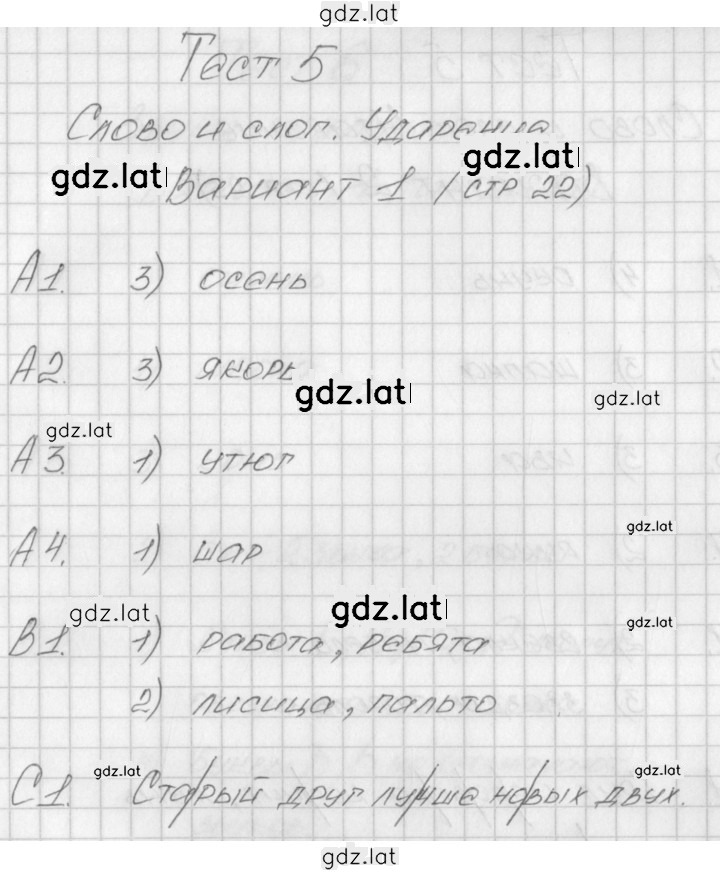 gdz.lat
Тест 5
Слово и слог. Ударение
gdz.lat
gdz.lat
Вариант 1 (стр 22)
А1. 3) осень
А2. 3) якорь
gdz.lat
gdz.lat
gdz.lat
А3. 1) утюг
gdz.lat
А4. 1) шар
gdz.lat
gdz.lat
gdz.lat
В1. 1) работа, ребята
2) лисица, пальто
gdz.lat
gdz.lat
С1. Ста/рый друг лу/чше но/вых двух.
gdz.lat